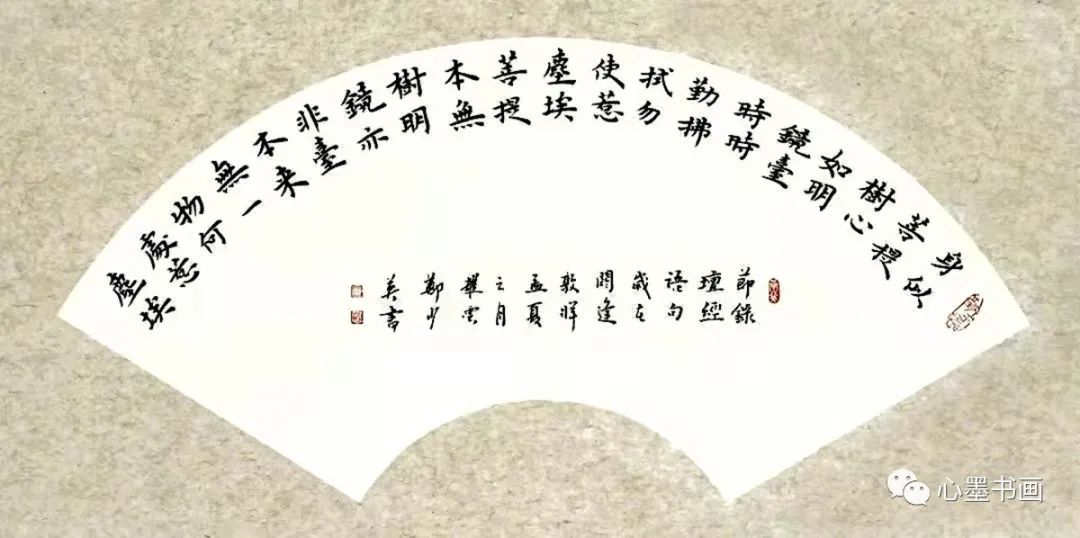 身似
菩提
樹心
如明
鏡臺
時時
勤拂
拭勿
使惹
塵埃
菩提
本無
樹明
鏡亦
非臺
本来
無一
物何
處惹
塵埃
節錄
壇經
語句
歲在
閼逢
敦牂
孟夏
之月
雲
鄭少
英書
心墨书画